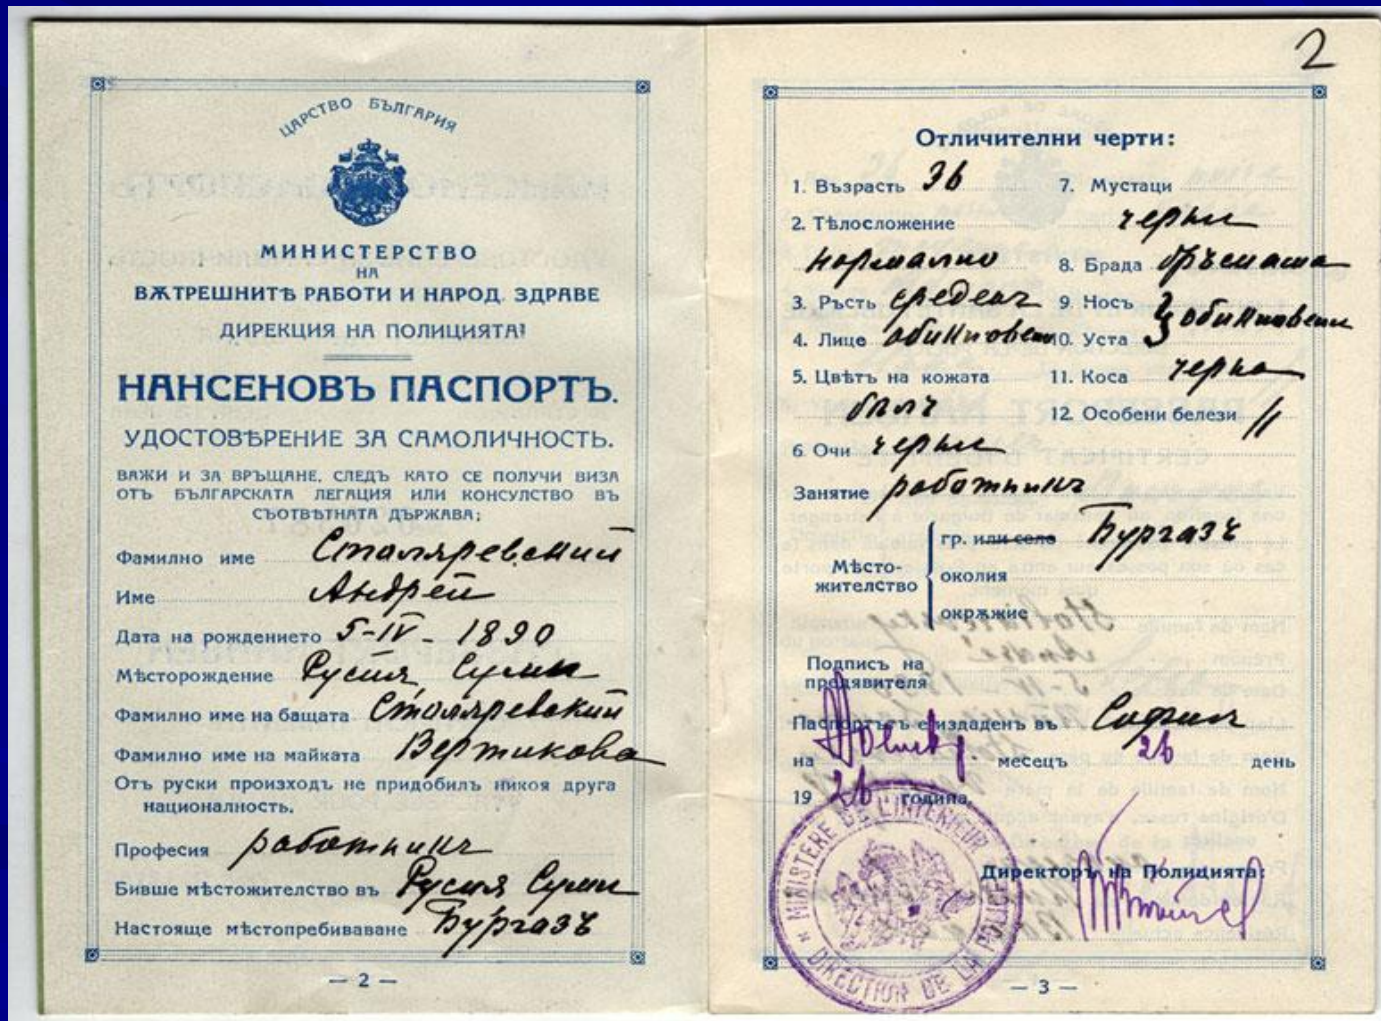 ЦАРСТВО БЪЛГАРИЯ
МИНИСТЕРСТВО
НА
ВѪТРЕШНИТѢ РАБОТИ И НАРОД. ЗДРАВЕ
ДИРЕКЦИЯ НА ПОЛИЦИЯТА!
НАНСЕНОВЪ ПАСПОРТЪ.
УДОСТОВѢРЕНИЕ ЗА САМОЛИЧНОСТЬ.
ВАЖИ И ЗА ВРЪЩАНЕ, СЛЕДЪ КАТО СЕ ПОЛУЧИ ВИЗА
ОТЪ БЪЛГАРСКАТА ЛЕГАЦИЯ ИЛИ КОНСУЛСТВО ВЪ
СЪОТВѢТНАТА ДЪРЖАВА;
Фамилно име Столяревский
Име Андрей
Дата на рождението 5-IV-1890
Мѣсторождение Русия Суми
Фамилно име на бащата Столяревский
Фамилно име на майката Вертикова
Отъ руски произходъ не придобилъ никоя друга
националность.
Професия работникъ
Бивше мѣстожителство въ Русия Суми
Настояще мѣстопребиваване Бургазъ
— 2 —
2
Отличителни черти:
1. Възрасть 36
7. Мустаци
2. Тѣлосложение
черни
нормално
8. Брада бръсната
3. Ръсть среденъ
9. Носъ
4. Лице обикновено
10. Уста
обикновени
5. Цвѣтъ на кожата
11. Коса черна
бялъ
12. Особени белези //
6. Очи черни
Занятие работникъ
Мѣсто-
жителство
гр. или село Бургазъ
околия
окрѫжие
Подпись на
предявителя
Паспортътъ е издаденъ въ София
на Ноемвр. месецъ 26 день
19 26 година,
Директоръ на Полицията:
MINISTERE DE L'INTERIEUR
DIRECTION DE LA POLICE
— 3 —